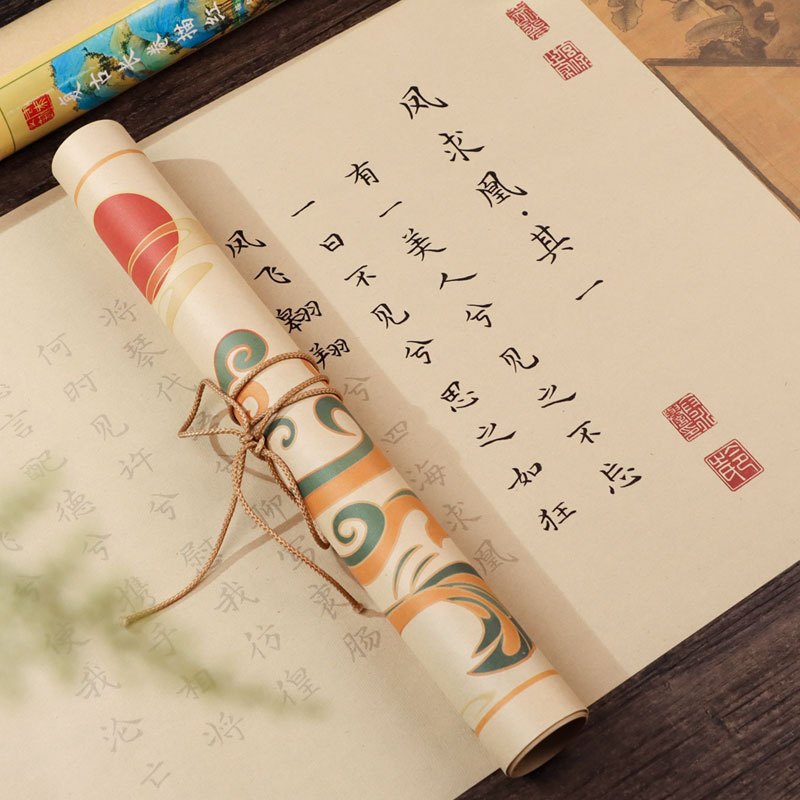 复古长卷描红
凤求凰·其一
有一美人兮见之不忘
一日不见兮思之如狂
凤飞翱翔兮四海求凰
将琴代聊写衷肠
何时见许兮慰我彷徨
言配德兮携手相将
飞兮使我沦亡